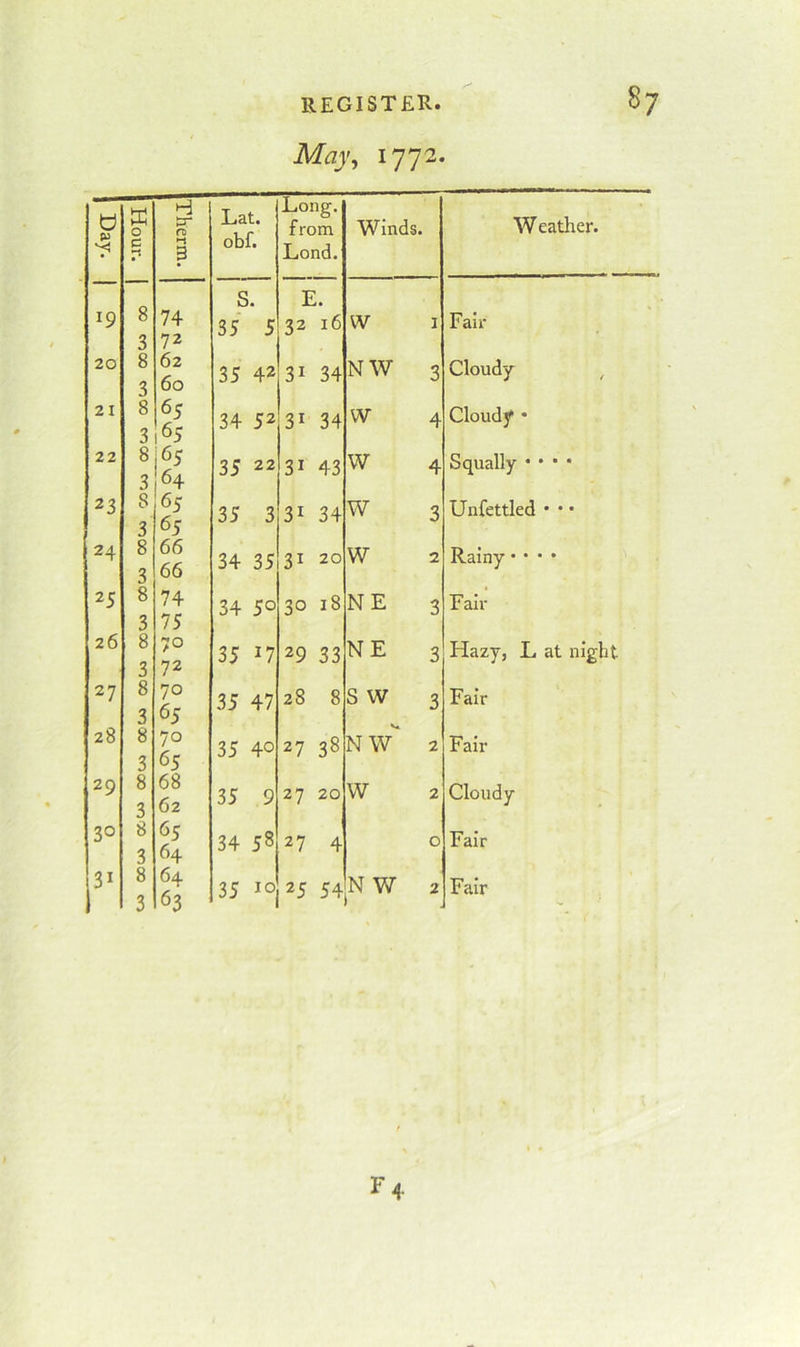 REGISTER. 87
May, 1772.
Day. Hour. Therm. Lat. obſ. Long. from Lond. Winds. Weather.
S. E.
19 8 74 35 5 32 16 W 1 Fair
3 72
20 8 62 35 42 31 34 N W 3 Cloudy
3 60
21 8 65 34 52 31 34 W 4 Cloudy •
3 65
22 8 65 35 22 31 43 W 4 Squally • • • •
3 64
23 8 65 35 3 31 34 W 3 Unſettled • • •
3 65
24 8 66 34 35 31 20 W 2 Rainy • • • •
3 66
25 8 74 34 50 30 18 N E 3 Fair
3 75
26 8 70 35 17 29 33 N E 3 Hazy, L at night
3 72
27 8 70 35 47 28 8 S W 3 Fair
3 65
28 8 70 35 40 27 38 N W 2 Fair
3 65
29 8 68 35 9 27 20 W 2 Cloudy
3 62
30 8 65 34 58 27 4 0 Fair
3 64
31 8 64 35 10 25 54 N W 2 Fair
3 63
F 4